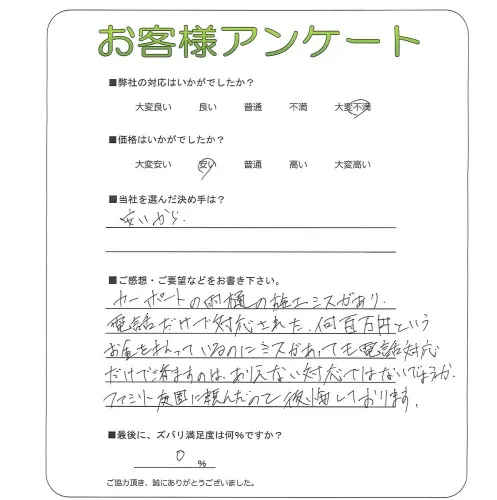 お客様アンケート
■弊社の対応はいかがでしたか？
大変良い 良い 普通 不満 大変不満
■価格はいかがでしたか？
大変安い 安い 普通 高い 大変高い
■当社を選んだ決め手は？
安いから.
■ご感想・ご要望などをお書き下さい。
カーポートの雨樋の施工ミスがあり.
電話だけで対応された.何百万円という
お金を払っているのにミスがあっても電話対応
だけで済ますのは、ありえない対応ではないでしょうか.
ファミリー庭園に頼んだので後悔しております。
■最後に、ズバリ満足度は何％ですか？
0 ％
ご協力頂き、誠にありがとうございました。